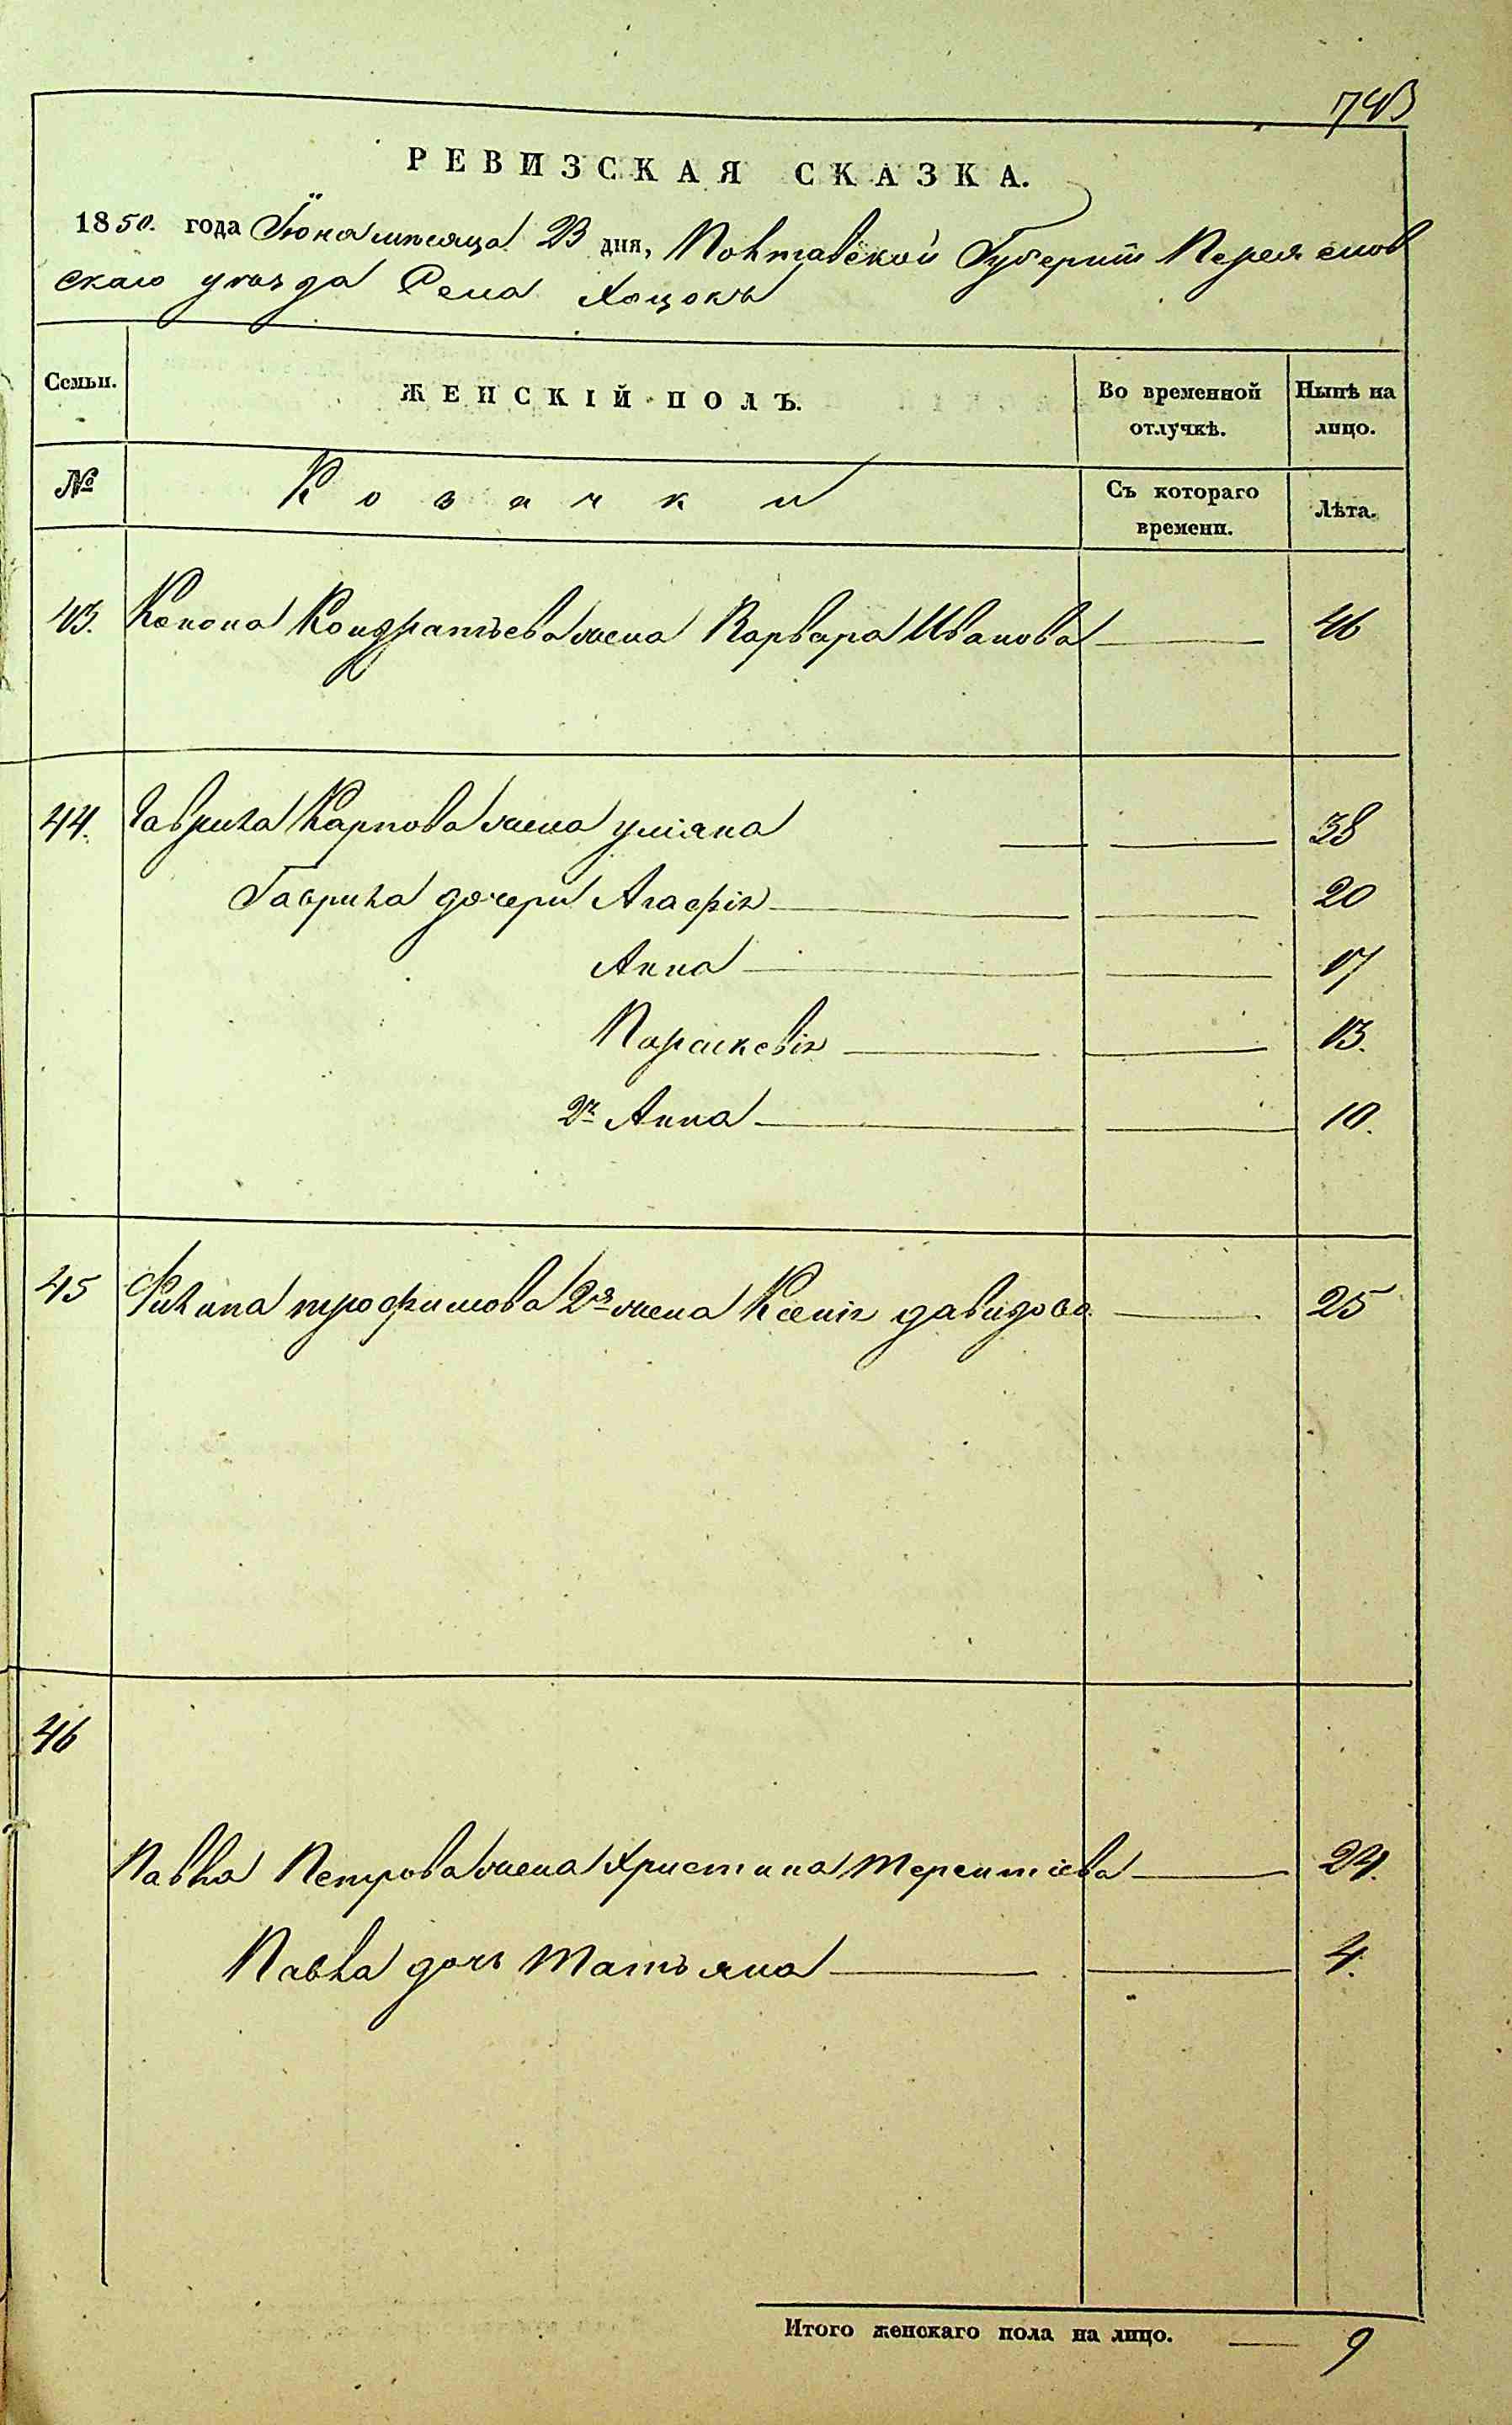 743
РЕВИЗСКАЯ СКАЗКА.
1850. года Іюня мѣсяца 23 дня, Полтавской Губерніи Переяслов
скаго уѣзда Села Хоцокъ
Семьи.
ЖЕНСКІЙ ПОЛЪ.
Во временной отлучкѣ.
Нынѣ на лицо.
№
Козачки
Съ котораго времени.
Лѣта.
43. Конона Кондратьева жена Варвара Иванова 46
44. Гаврила Карпова жена уліяна 38
Гаврила дочери Агафія 20
Анна 17
Параскевія 13.
2я Анна 10.
45 Филипа трофимова 2я жена Ксенія давидова 25
46
Павла Петрова жена Христина терентіева 24.
Павла дочь татьяна 4.
Итого женскаго пола на лицо. 9